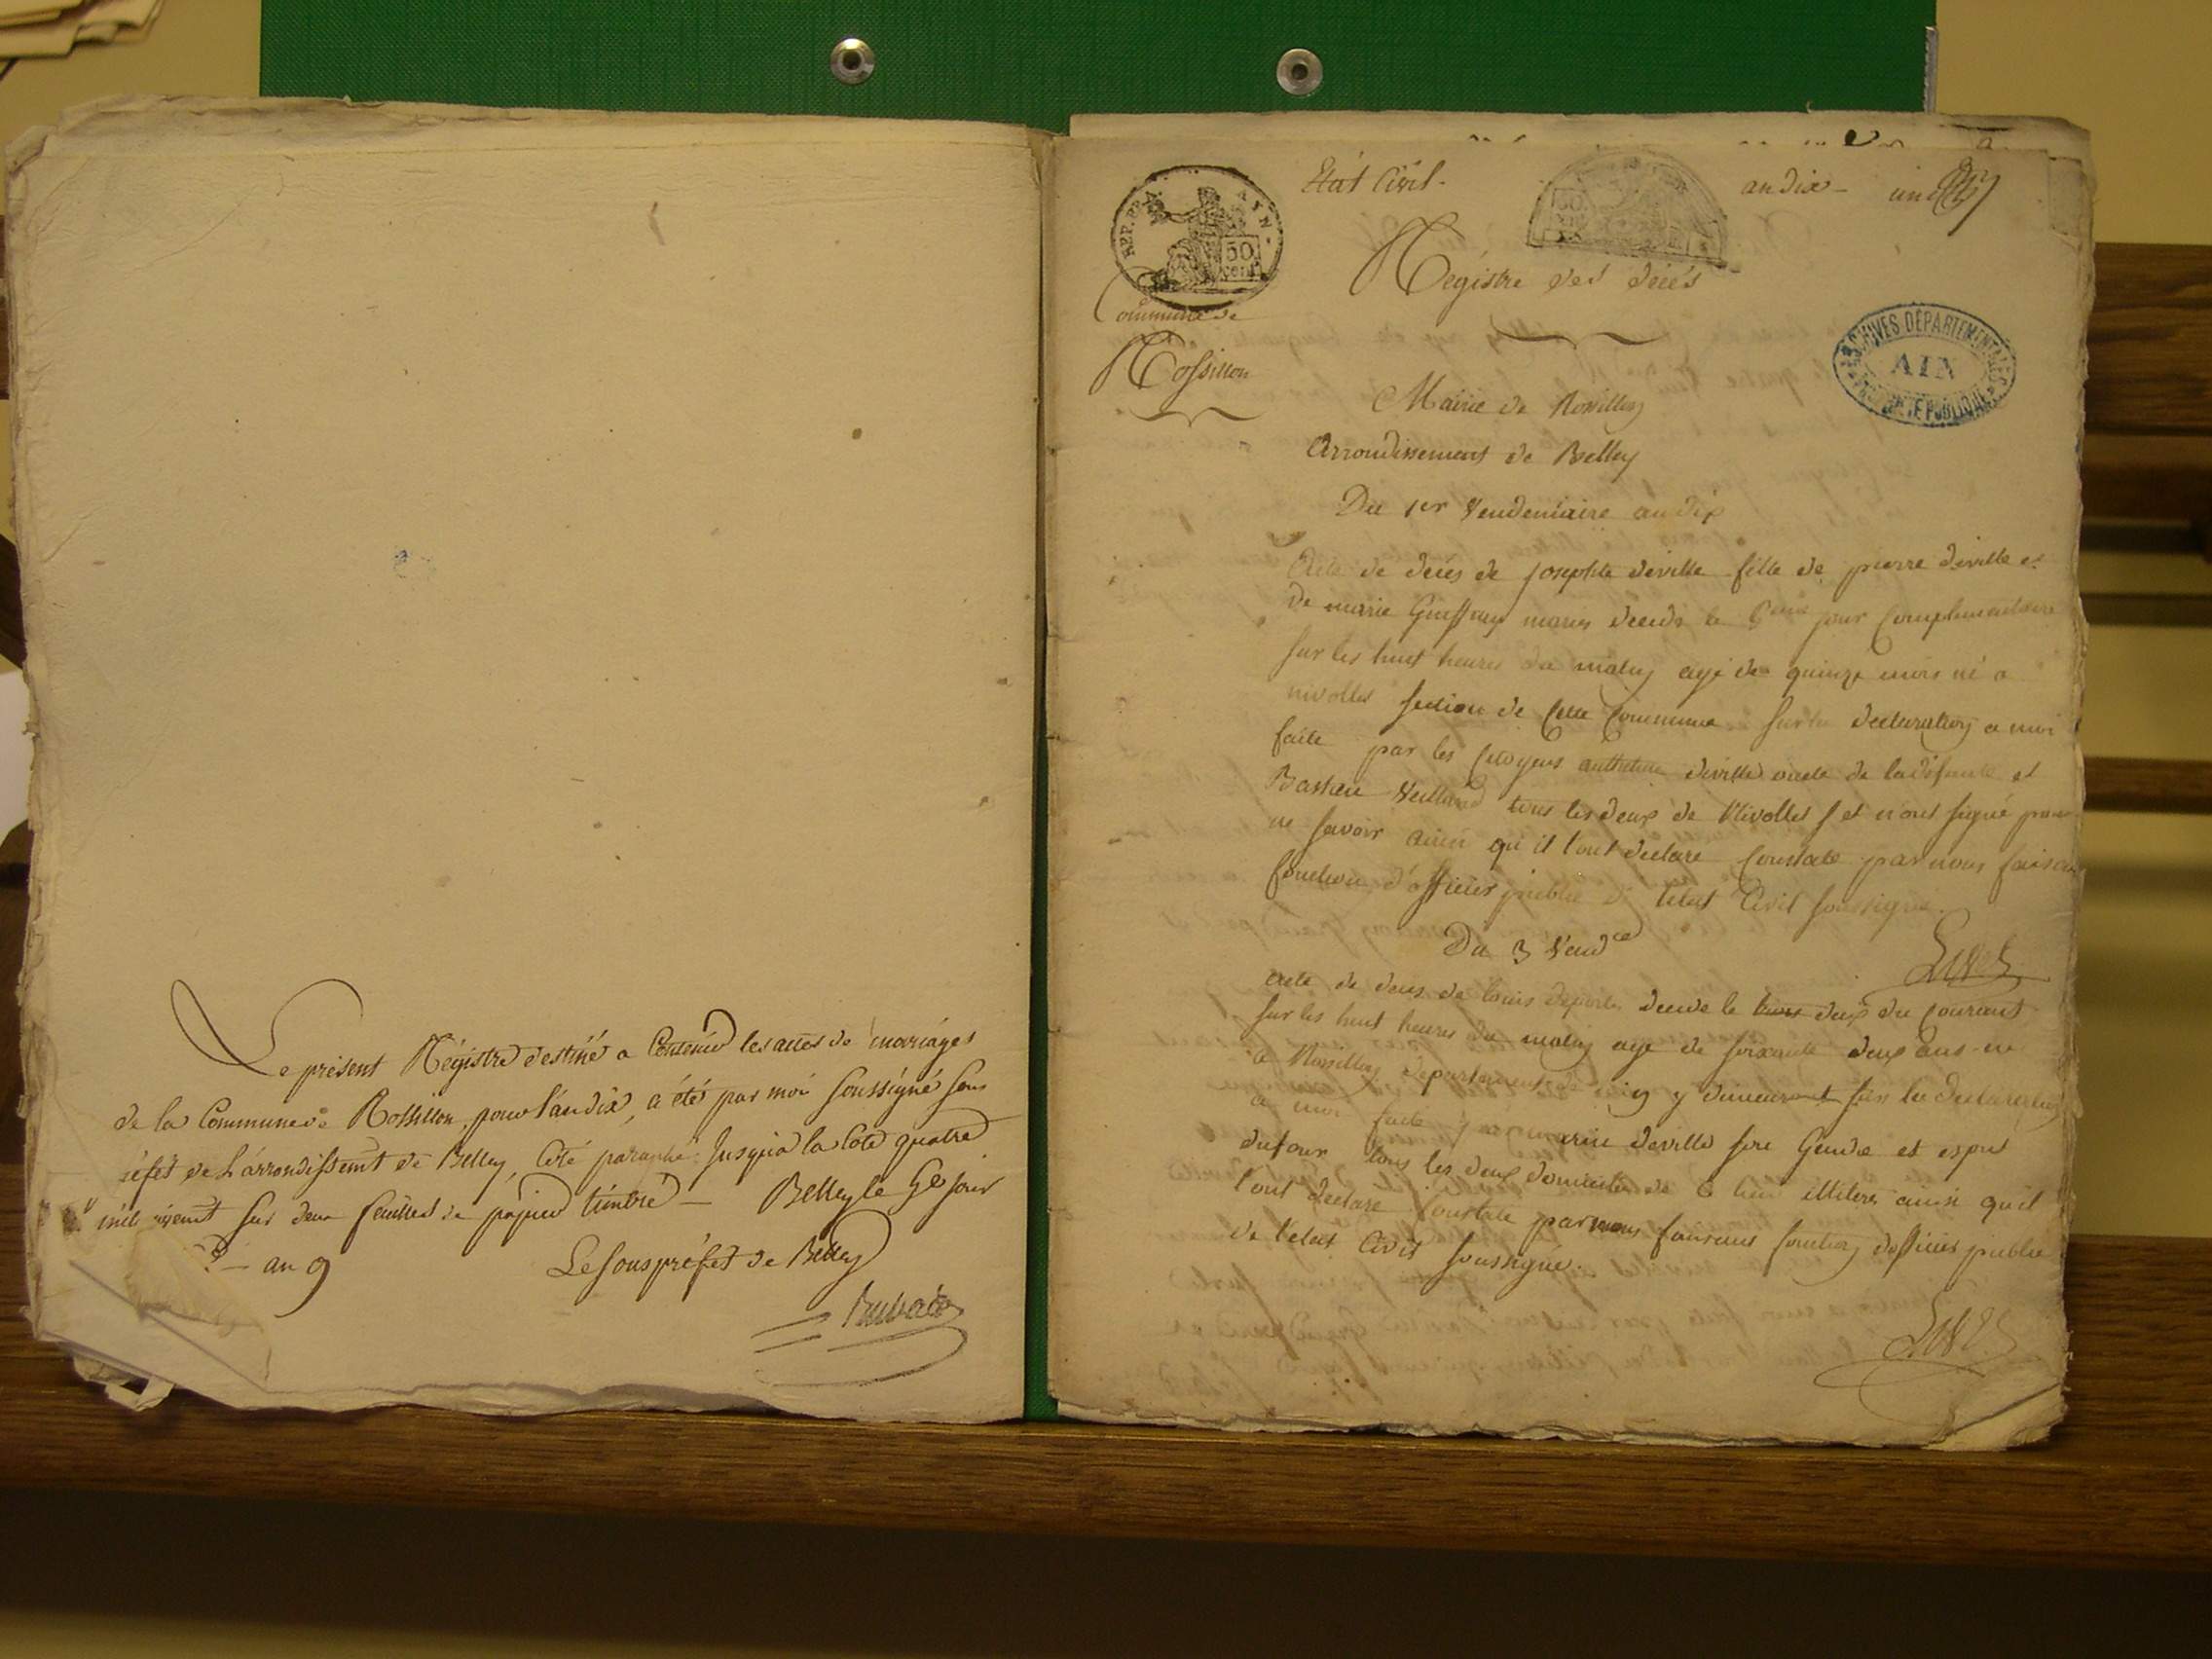 Le présent Régistre destiné a Contenir les actes de mariages
de la Commune de Rossillon, pour l'an dix, a été par moi soussigné sous
préfet de L'arrondissemt de Belley, Coté paraphé jusqu'a la Cote quatre
sur deux feuilles de papier timbré — Belley le 5e jour
an 9
Le sous préfet de Belley
Etat Civil. an dix — un
REP. FRA. AIN.
50 cent.
Registre des décés
Commune de
Rossillon
ARCHIVES DÉPARTEMENTALES
AIN
Mairie de Rossillon
Arrondissement de Belley
Du 1er Vendemiaire an dix
Acte de decés de Josephte deville fille de pierre deville et
de marie mariés decedé le jour Complementaire
sur les huit heures du matin agé de quinze mois né a
nivollet section de Cette Commune sur la declaration a moi
faite par les Citoyens anthelme deville oncle de la defunte et
tous les deux de Nivollet et n'ont signé pour
ne savoir ainsi qu'il l'ont declaré Constaté par nous faisant
fonction d'officier public de l'etat Civil soussigné.
Du 3 Vendre
acte de deces de louis decede le trois deux du courant
sur les huit heures du matin age de soixante deux ans ne
a Rossillon departement de y demeurant sur la declaration
a moi faite deville son Gendre et
dufour tous les deux domicilies de ce lieu illiteres ainsi qu'il
l'ont declare Constate par nous faisant fonction d'officier public
de l'etat Civil soussigné.